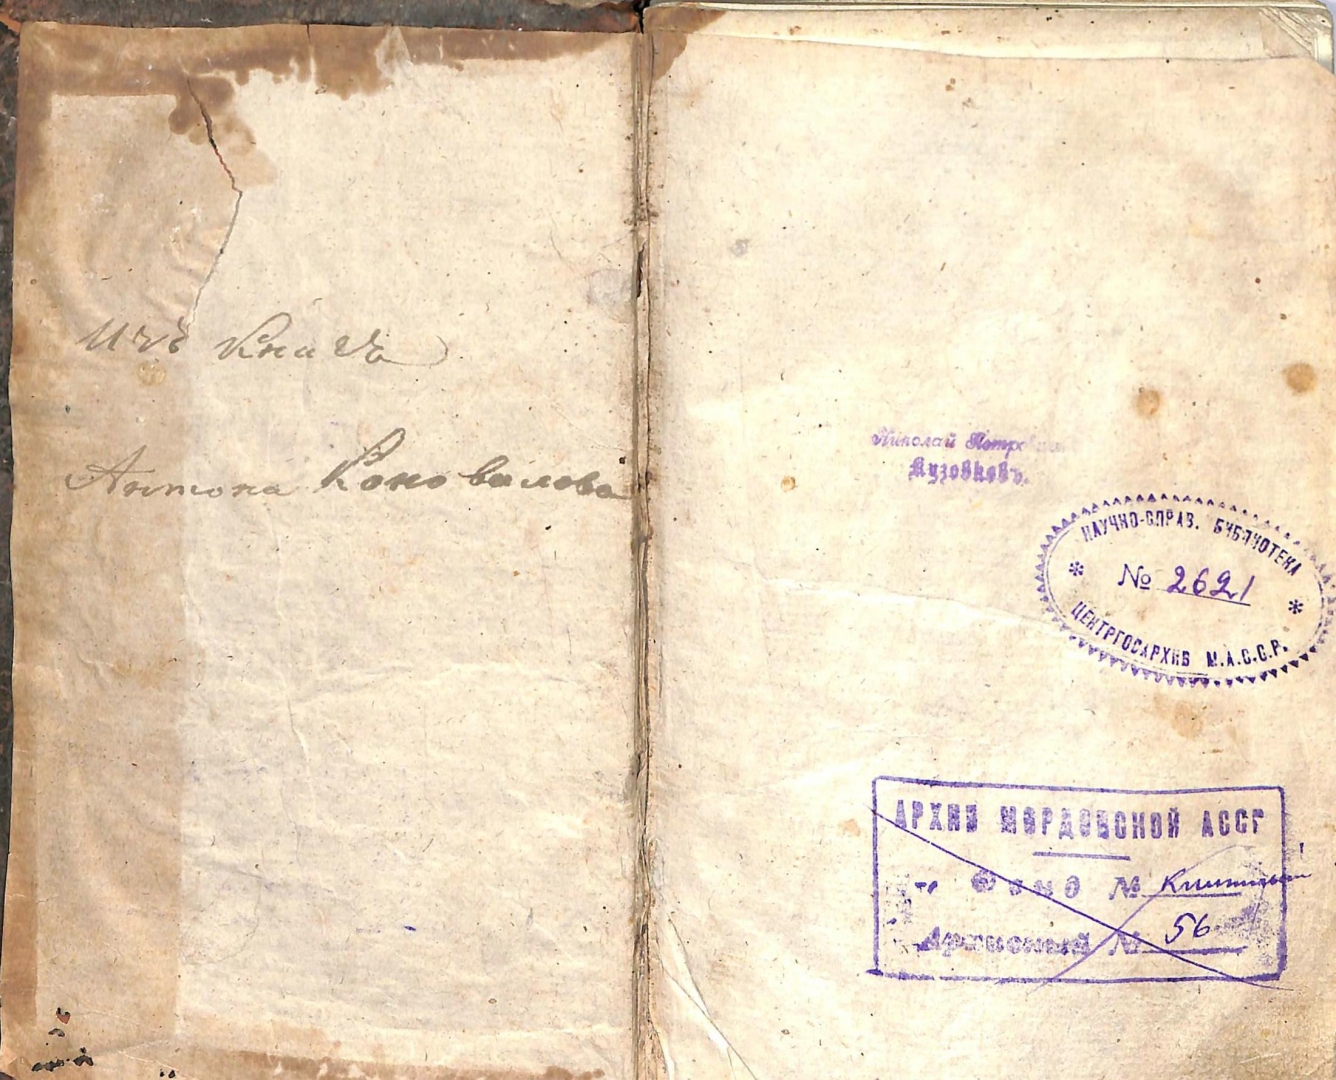 Изъ Книгъ
Антона Коновалова
Николай Петрович
Кузовковъ.
НАУЧНО-СПРАВ. БИБЛИОТЕКА
№ 2621
ЦЕНТРГОСАРХИВ М.А.С.С.Р.
АРХИВ МОРДОВСКОЙ АССР
Фонд № Книжный
Архивный № 56